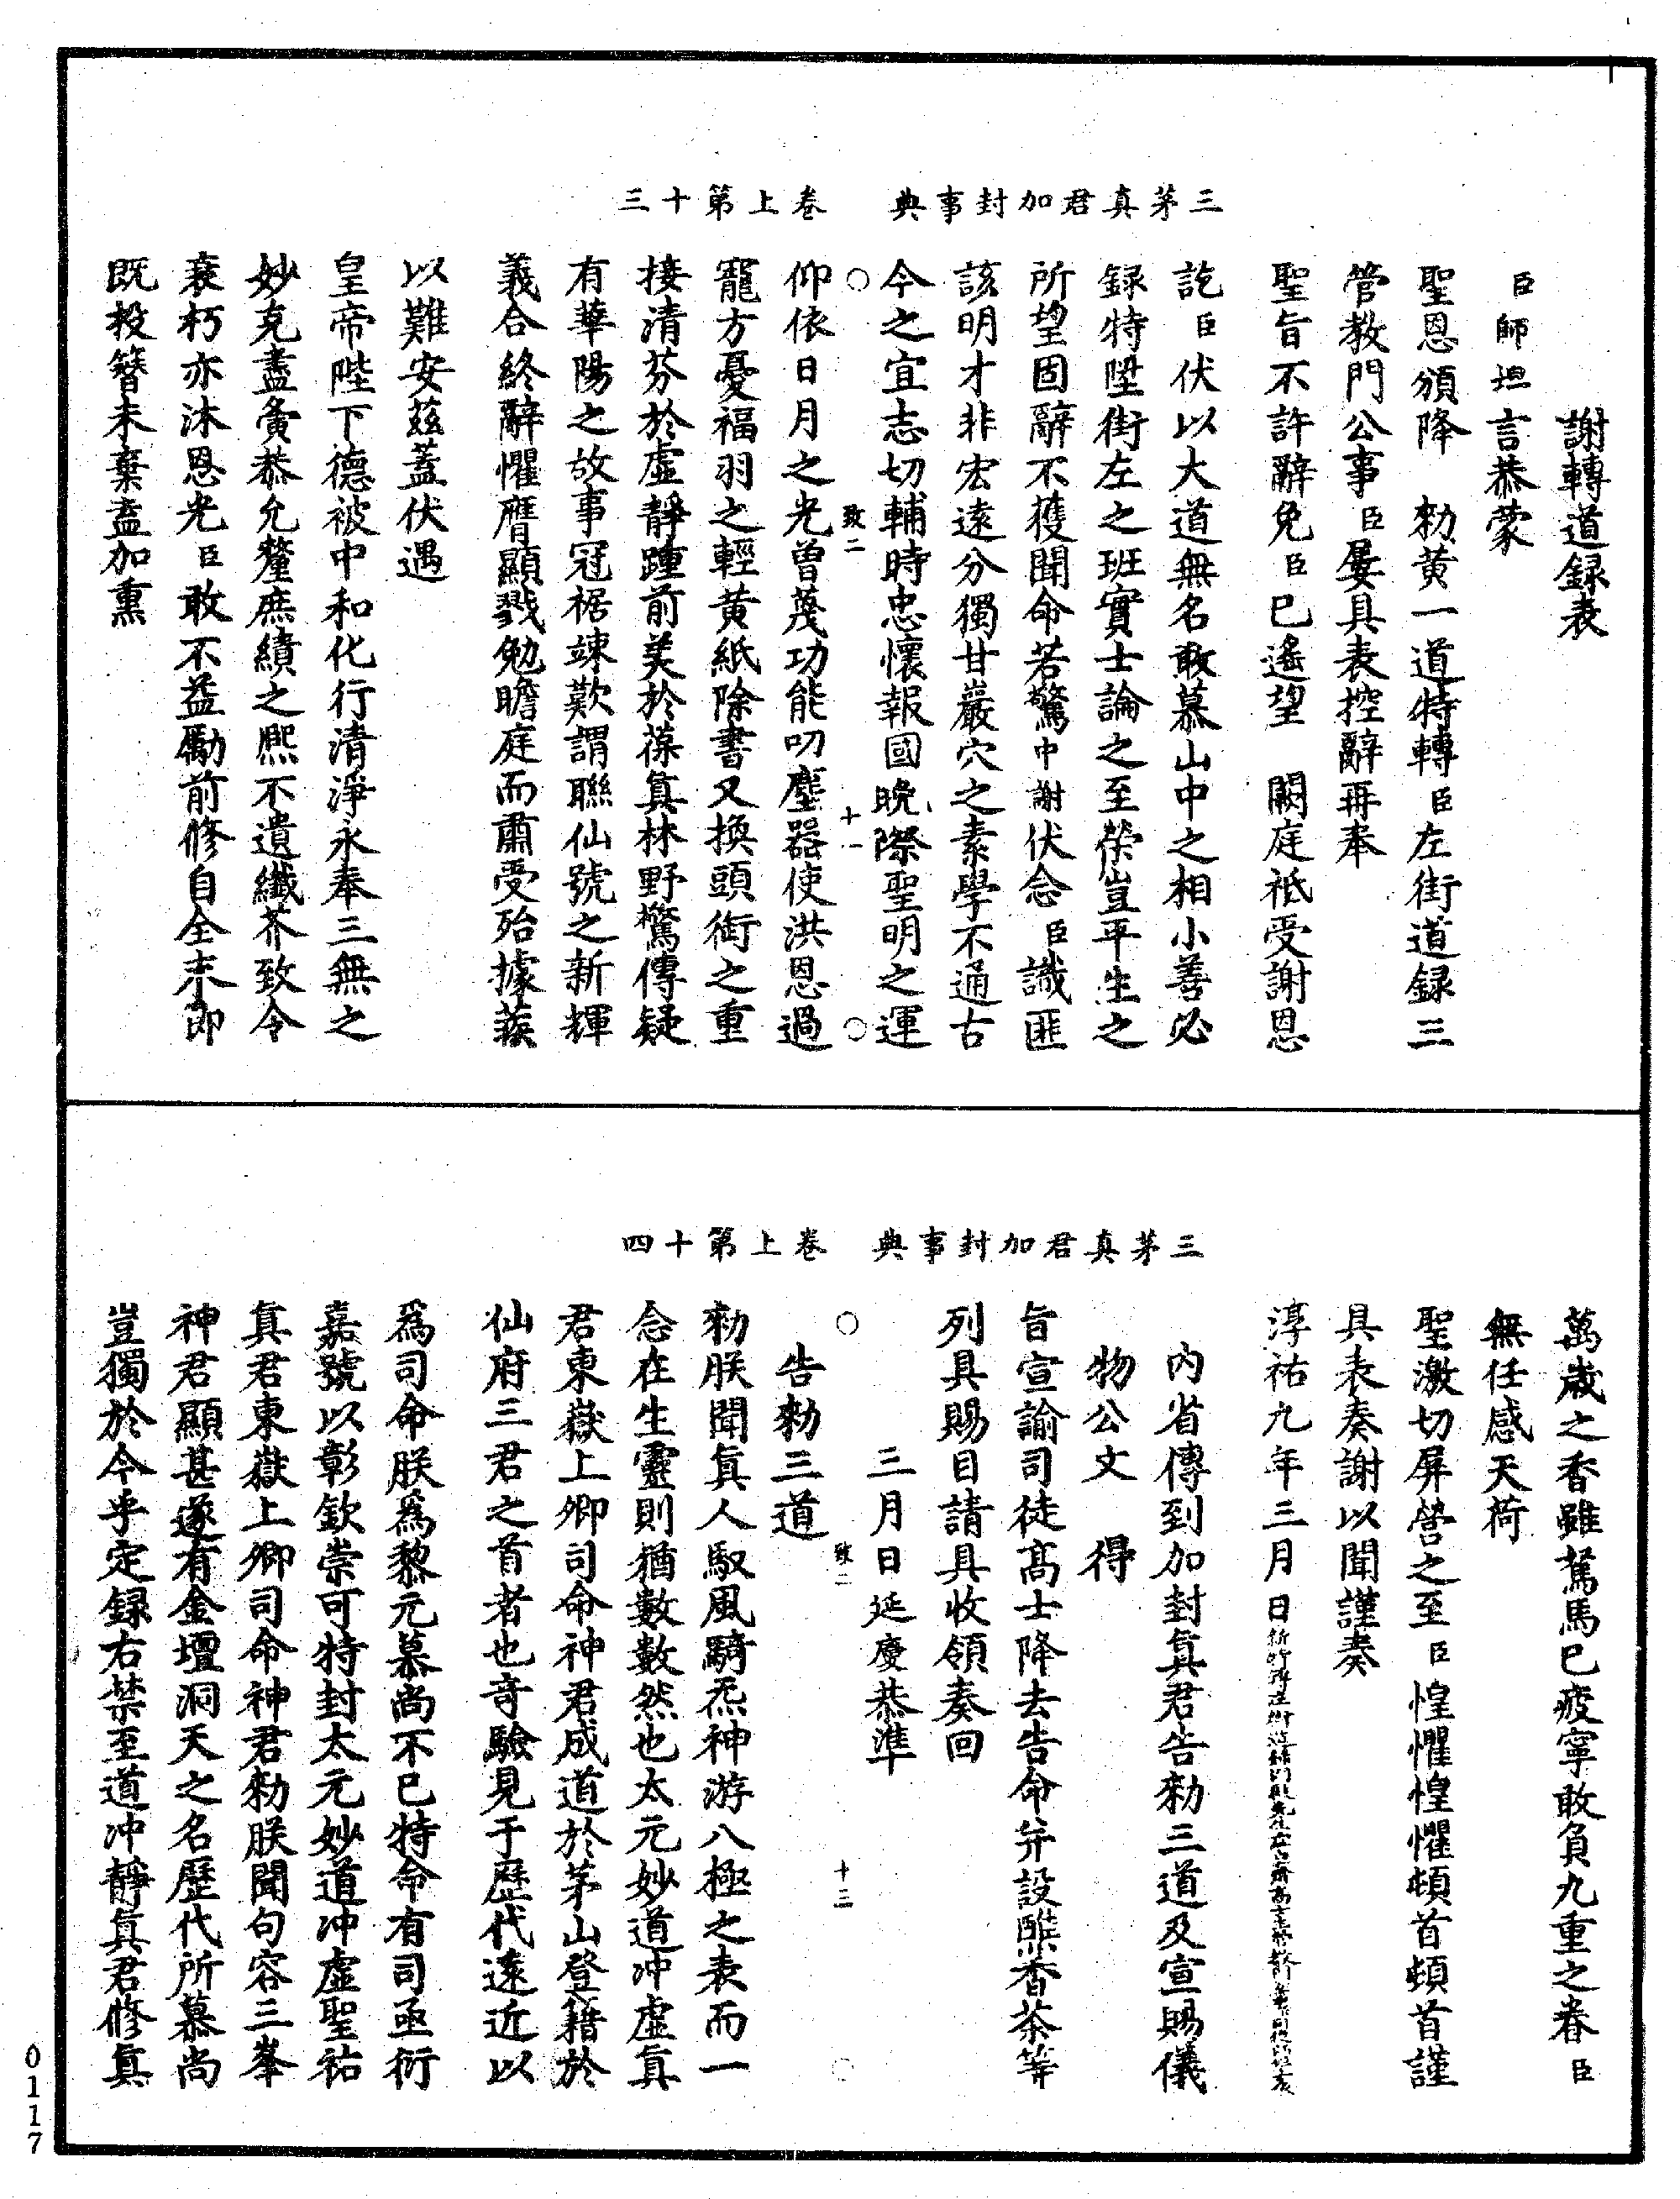 三茅真君加封事典　卷上第十三
謝轉道録表
臣師坦言恭蒙
聖恩頒降　勑黄一道特轉臣左街道録三
管教門公事臣屡具表控辭再奉
聖旨不許辭免臣已遙望　闕庭祗受謝恩
訖臣伏以大道無名敢慕山中之相小善必
録特陞街左之班實士論之至榮豈平生之
所望固辭不獲聞命若驚中謝伏念臣識匪
該明才非宏遠分獨甘巖穴之素學不通古
今之宜志切輔時忠懷報國晚際聖明之運
致二　十一
仰依日月之光曾蔑功能叨塵器使洪恩過
寵方憂福羽之輕黄紙除書又換頭銜之重
接清芬於虛靜踵前美於葆真林野驚傳疑
有華陽之故事冠裾竦歎謂聯仙號之新輝
義合終辭懼膺顯戮勉瞻庭而肅受殆據蒺
以難安茲蓋伏遇
皇帝陛下德被中和化行清淨永奉三無之
妙克盡夤恭允釐庶績之熈不遺纖芥致令
衰朽亦沐恩光臣敢不益勵前修自全末節
既投簪未棄盍加熏
三茅真君加封事典　卷上第十四
萬歲之香雖駑馬已疲寧敢負九重之眷臣
無任感天荷
聖激切屏營之至臣惶懼惶懼頓首頓首謹
具表奏謝以聞謹奏
淳祐九年三月　日
内省傳到加封真君告勑三道及宣賜儀
物公文　得
旨宣諭司徒髙士降去告命并設醮香茶等
列具賜目請具收領奏回
三月日延慶恭準
致二　十二
告勑三道
勑朕聞真人馭風騎炁神游八極之表而一
念在生靈則猶數數然也太元妙道冲虛真
君東嶽上卿司命神君成道於茅山登籍於
仙府三君之首者也竒驗見于歷代遠近以
爲司命朕爲黎元慕尚不已特命有司亟衍
嘉號以彰欽崇可特封太元妙道冲虛聖祐
真君東嶽上卿司命神君勑朕聞句容三峯
神君顯甚邃有金壇洞天之名歷代所慕尚
豈獨於今乎定録右禁至道冲靜真君修真
0117